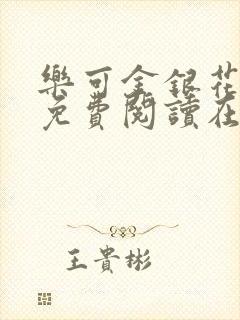 樂可金銀花
免費閱讀在
王貴彬